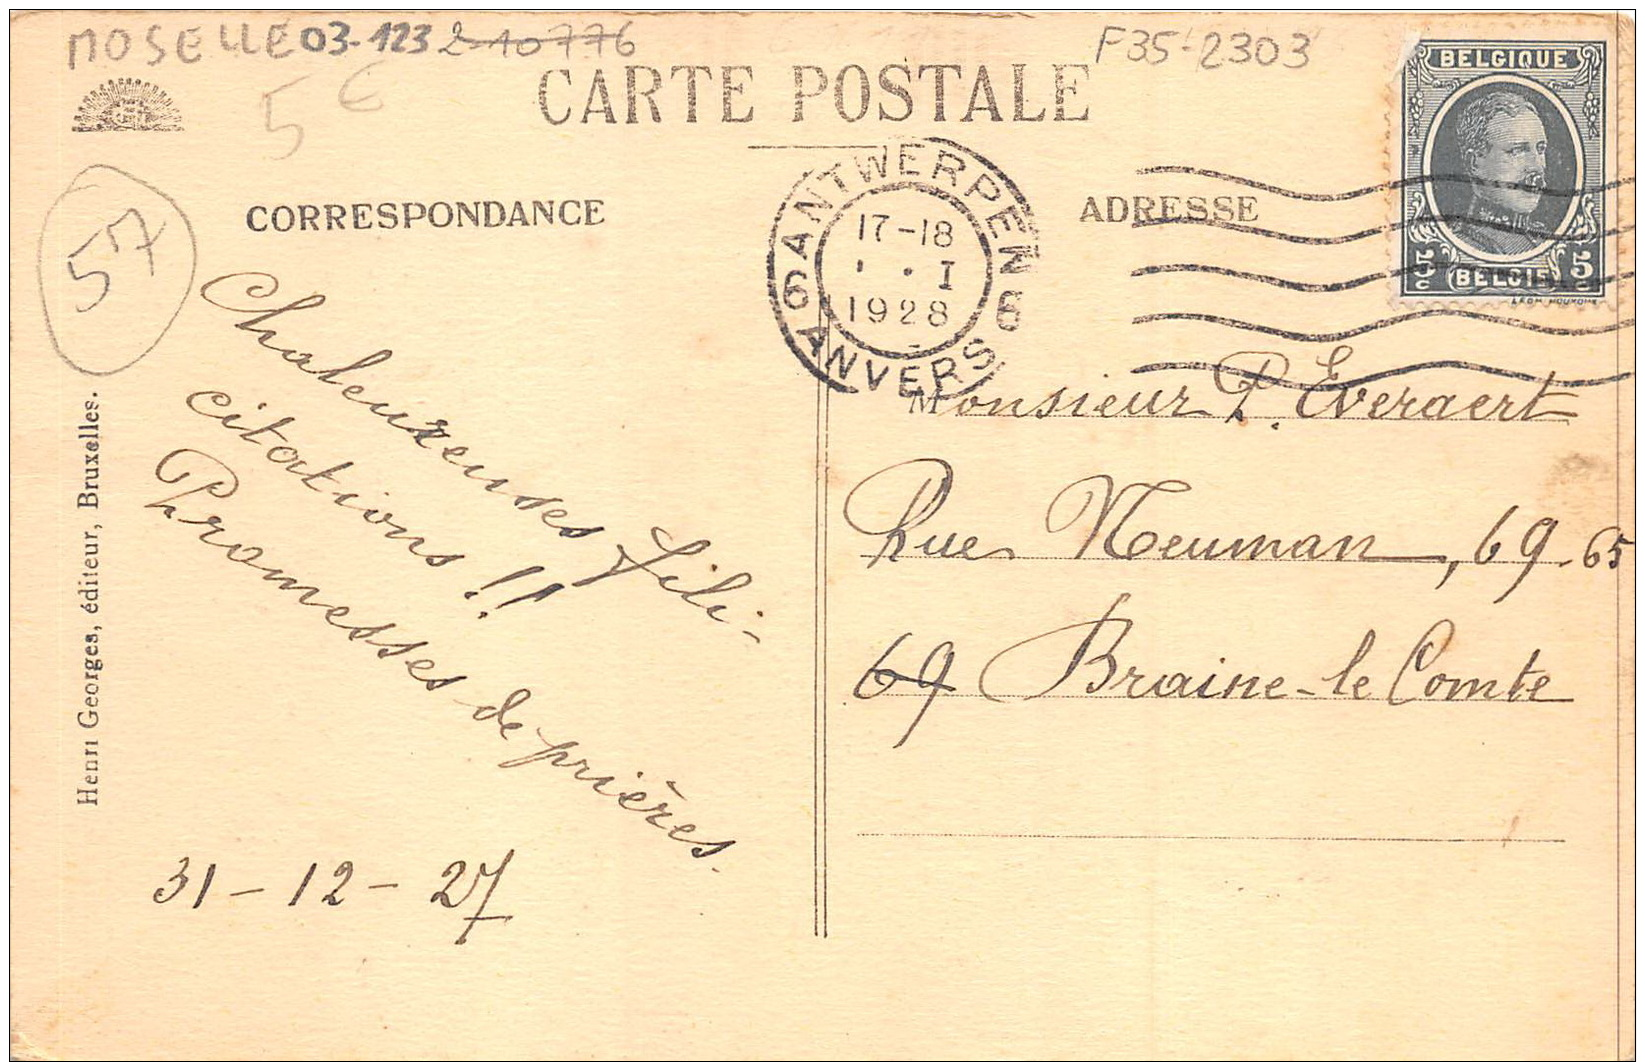 MOSELLE 03-123 2-10776
F35-2303
5 €
CARTE POSTALE
57
CORRESPONDANCE
ADRESSE
BELGIQUE
5 c BELGIE 5 c
ANTWERPEN
6 6
17-18
1 . I
1928
ANVERS
Henri Georges, éditeur, Bruxelles.
Chaleureuses féli-
citations !!
Promesses de prières.
31 - 12 - 27
Monsieur P. Everaert
Rue Neuman, 69-65
69 Braine-le Comte